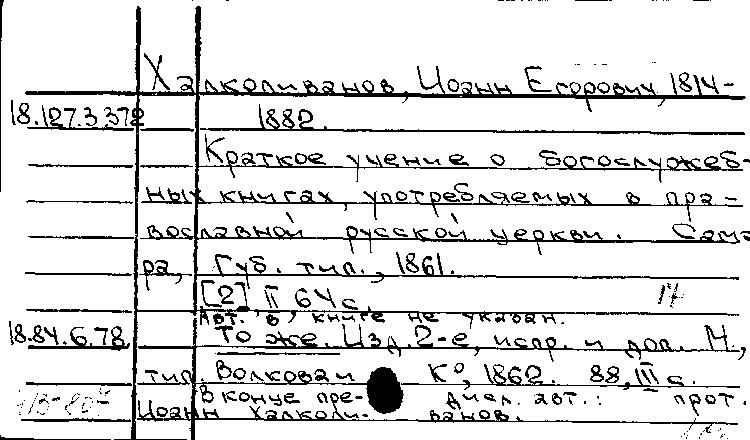 Халколиванов, Иоанн Егорович, 1814-
18.127.3.372 1882.
Краткое учение о богослужеб-
ных книгах, употребляемых в пра-
вославной русской церкви. Сама
ра, Губ. тип., 1861.
[2], II 64 с. 14
Авт. в книге не указан.
18.84.6.78. То же. Изд. 2-е, испр. и доп. М.,
тип. Волкова и К°, 1862. 88, III с.
В конце пре- дисл. авт.: прот.
Иоанн Халколи- ванов.